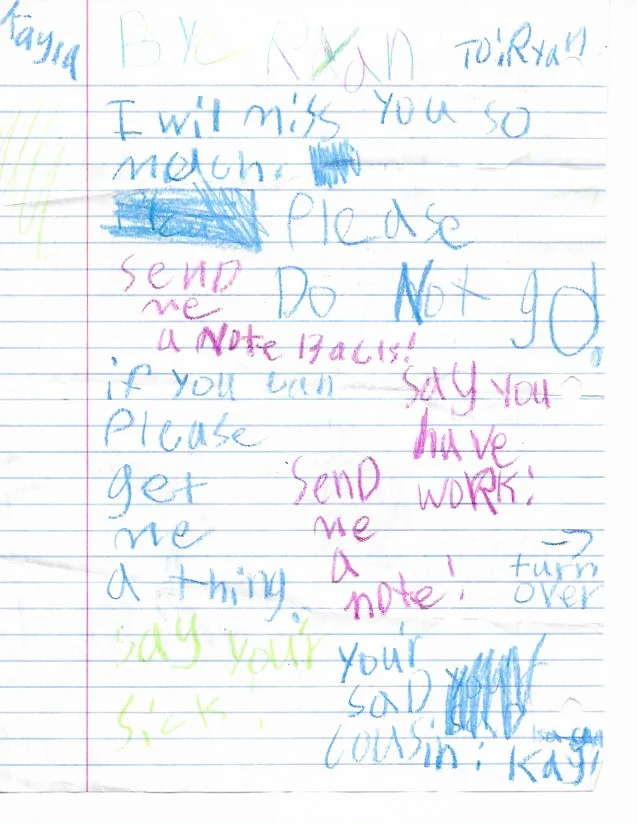 Kayla
Bye Ryan
TO: Ryan
I wil miss you so
mach.
Please
Do Not go!
SenD
me
a Note Back!
if you can
Please
get
me
a thing.
Say you
have
WORK!
SenD
me
a
note!
turn
over
Say your
Sick!
your
SaD
cousin:
Kayl